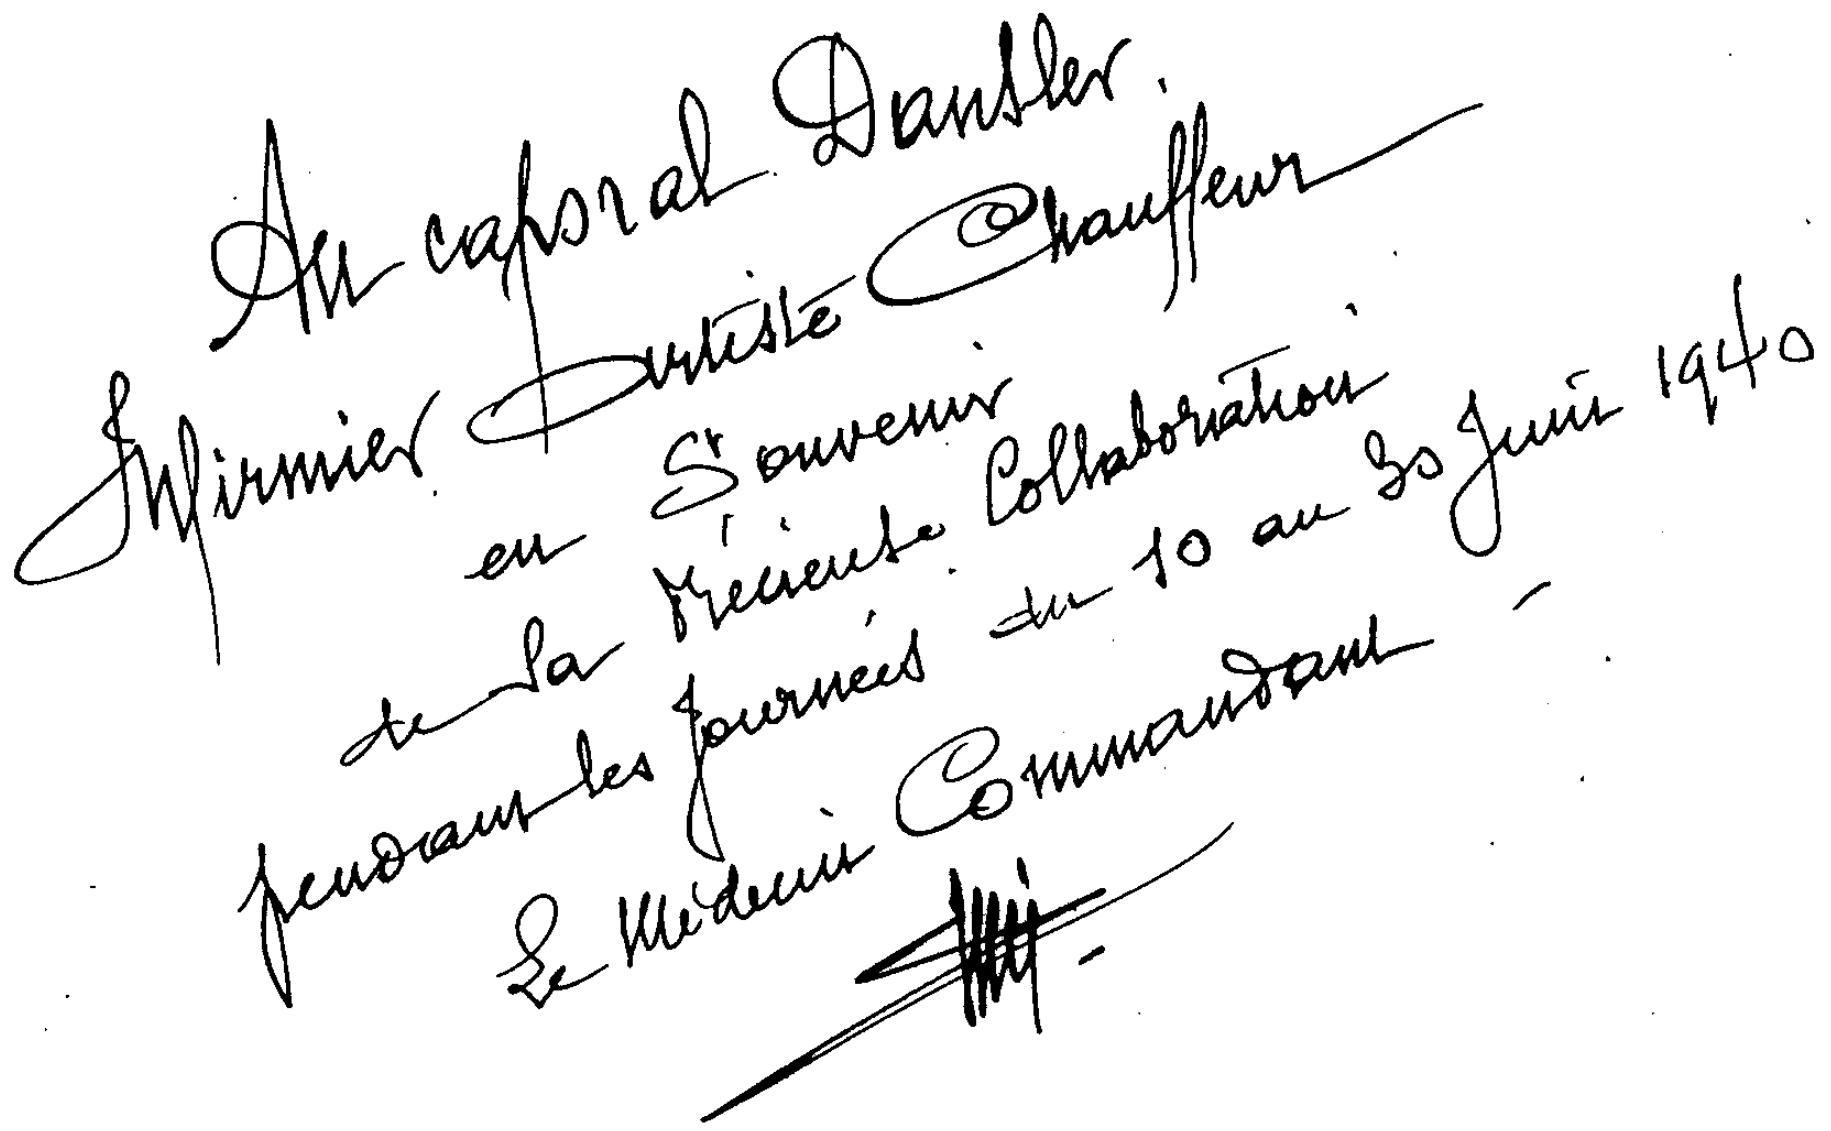 Au caporal Dansler.
Infirmier Artiste Chauffeur
en Souvenir
de la récente Collaboration
pendant les journées du 10 au 30 Juin 1940
Le Médecin Commandant